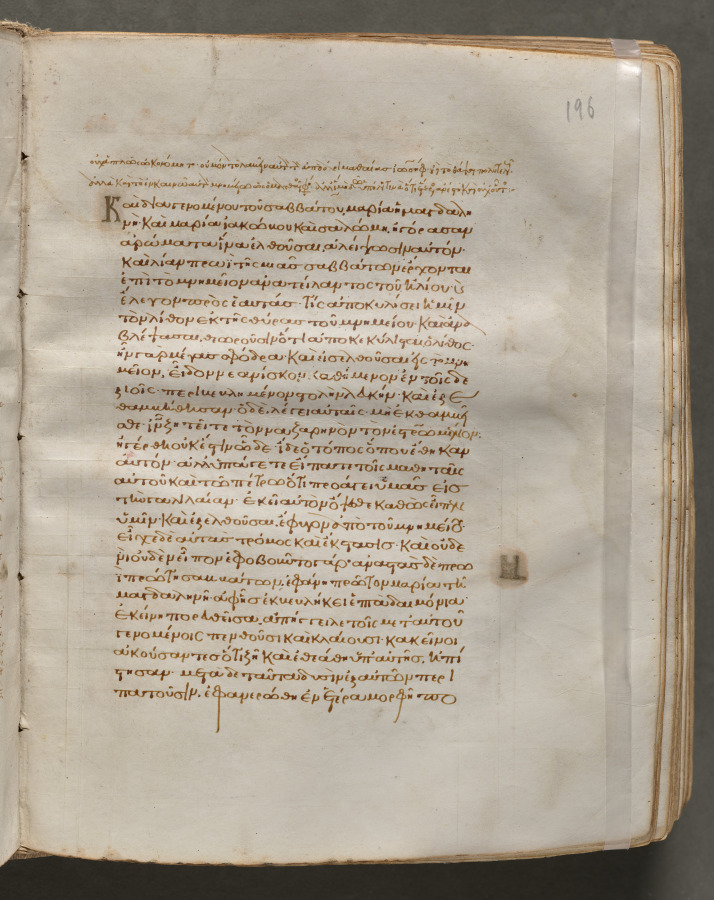 196
Καὶ διαγενομένου τοῦ σαββάτου, μαρία ἡ μαγδαλη
νὴ καὶ μαρία ἰακώβου καὶ σαλώμη, ἠγόρασαν
ἀρώματα ἵνα ἐλθοῦσαι ἀλείψωσιν αὐτόν·
Καὶ λίαν πρωῒ τῆς μιᾶς σαββάτων ἔρχονται
ἐπὶ τὸ μνημεῖον ἀνατείλαντος τοῦ ἡλίου·
ἔλεγον πρὸς ἑαυτάς· τίς ἀποκυλίσει ἡμῖν
τὸν λίθον ἐκ τῆς θύρας τοῦ μνημείου· Καὶ ἀνα
βλέψασαι, θεωροῦσιν ὅτι ἀποκεκύλισται ὁ λίθος·
ἦν γὰρ μέγας σφόδρα· Καὶ εἰσελθοῦσαι εἰς τὸ μνη
μεῖον, εἶδον νεανίσκον, καθήμενον ἐν τοῖς δε
ξιοῖς· περιβεβλημένον στολὴν λευκήν· Καὶ ἐξε
θαμβήθησαν· ὁ δὲ λέγει αὐταῖς· μὴ ἐκθαμβεῖ
σθε· ἰν ζητεῖτε τὸν ναζαρηνὸν τὸν ἐσταυρωμένον·
ἠγέρθη οὐκ ἔστιν ὧδε· ἴδε ὁ τόπος ὅπου ἔθηκαν
αὐτόν· ἀλλ' ὑπάγετε εἴπατε τοῖς μαθηταῖς
αὐτοῦ καὶ τῷ πέτρῳ ὅτι προάγει ὑμᾶς εἰς
τὴν γαλιλαίαν· ἐκεῖ αὐτὸν ὄψεσθε καθὼς εἶπεν
ὑμῖν· Καὶ ἐξελθοῦσαι, ἔφυγον ἀπὸ τοῦ μνημείου·
εἶχε δὲ αὐτὰς τρόμος καὶ ἔκστασις· Καὶ οὐδε
νὶ οὐδὲν εἶπον, ἐφοβοῦντο γάρ· ἀναστὰς δὲ πρωῒ
πρώτη σαββάτων, ἐφάνη πρῶτον μαρία τῇ
μαγδαληνῇ· ἀφ' ἧς ἐκβεβλήκει ἑπτὰ δαιμόνια·
ἐκείνη πορευθεῖσα, ἀπήγγειλε τοῖς μετ' αὐτοῦ
γενομένοις πενθοῦσι καὶ κλαίουσι· κακεῖνοι
ἀκούσαντες ὅτι ζῆ καὶ ἐθεάθη ὑπ' αὐτῆς, ἠπί
στησαν· μετὰ δὲ ταῦτα δυσὶν ἐξ αὐτῶν περι
πατοῦσιν, ἐφανερώθη ἐν ἑτέρα μορφῇ πο